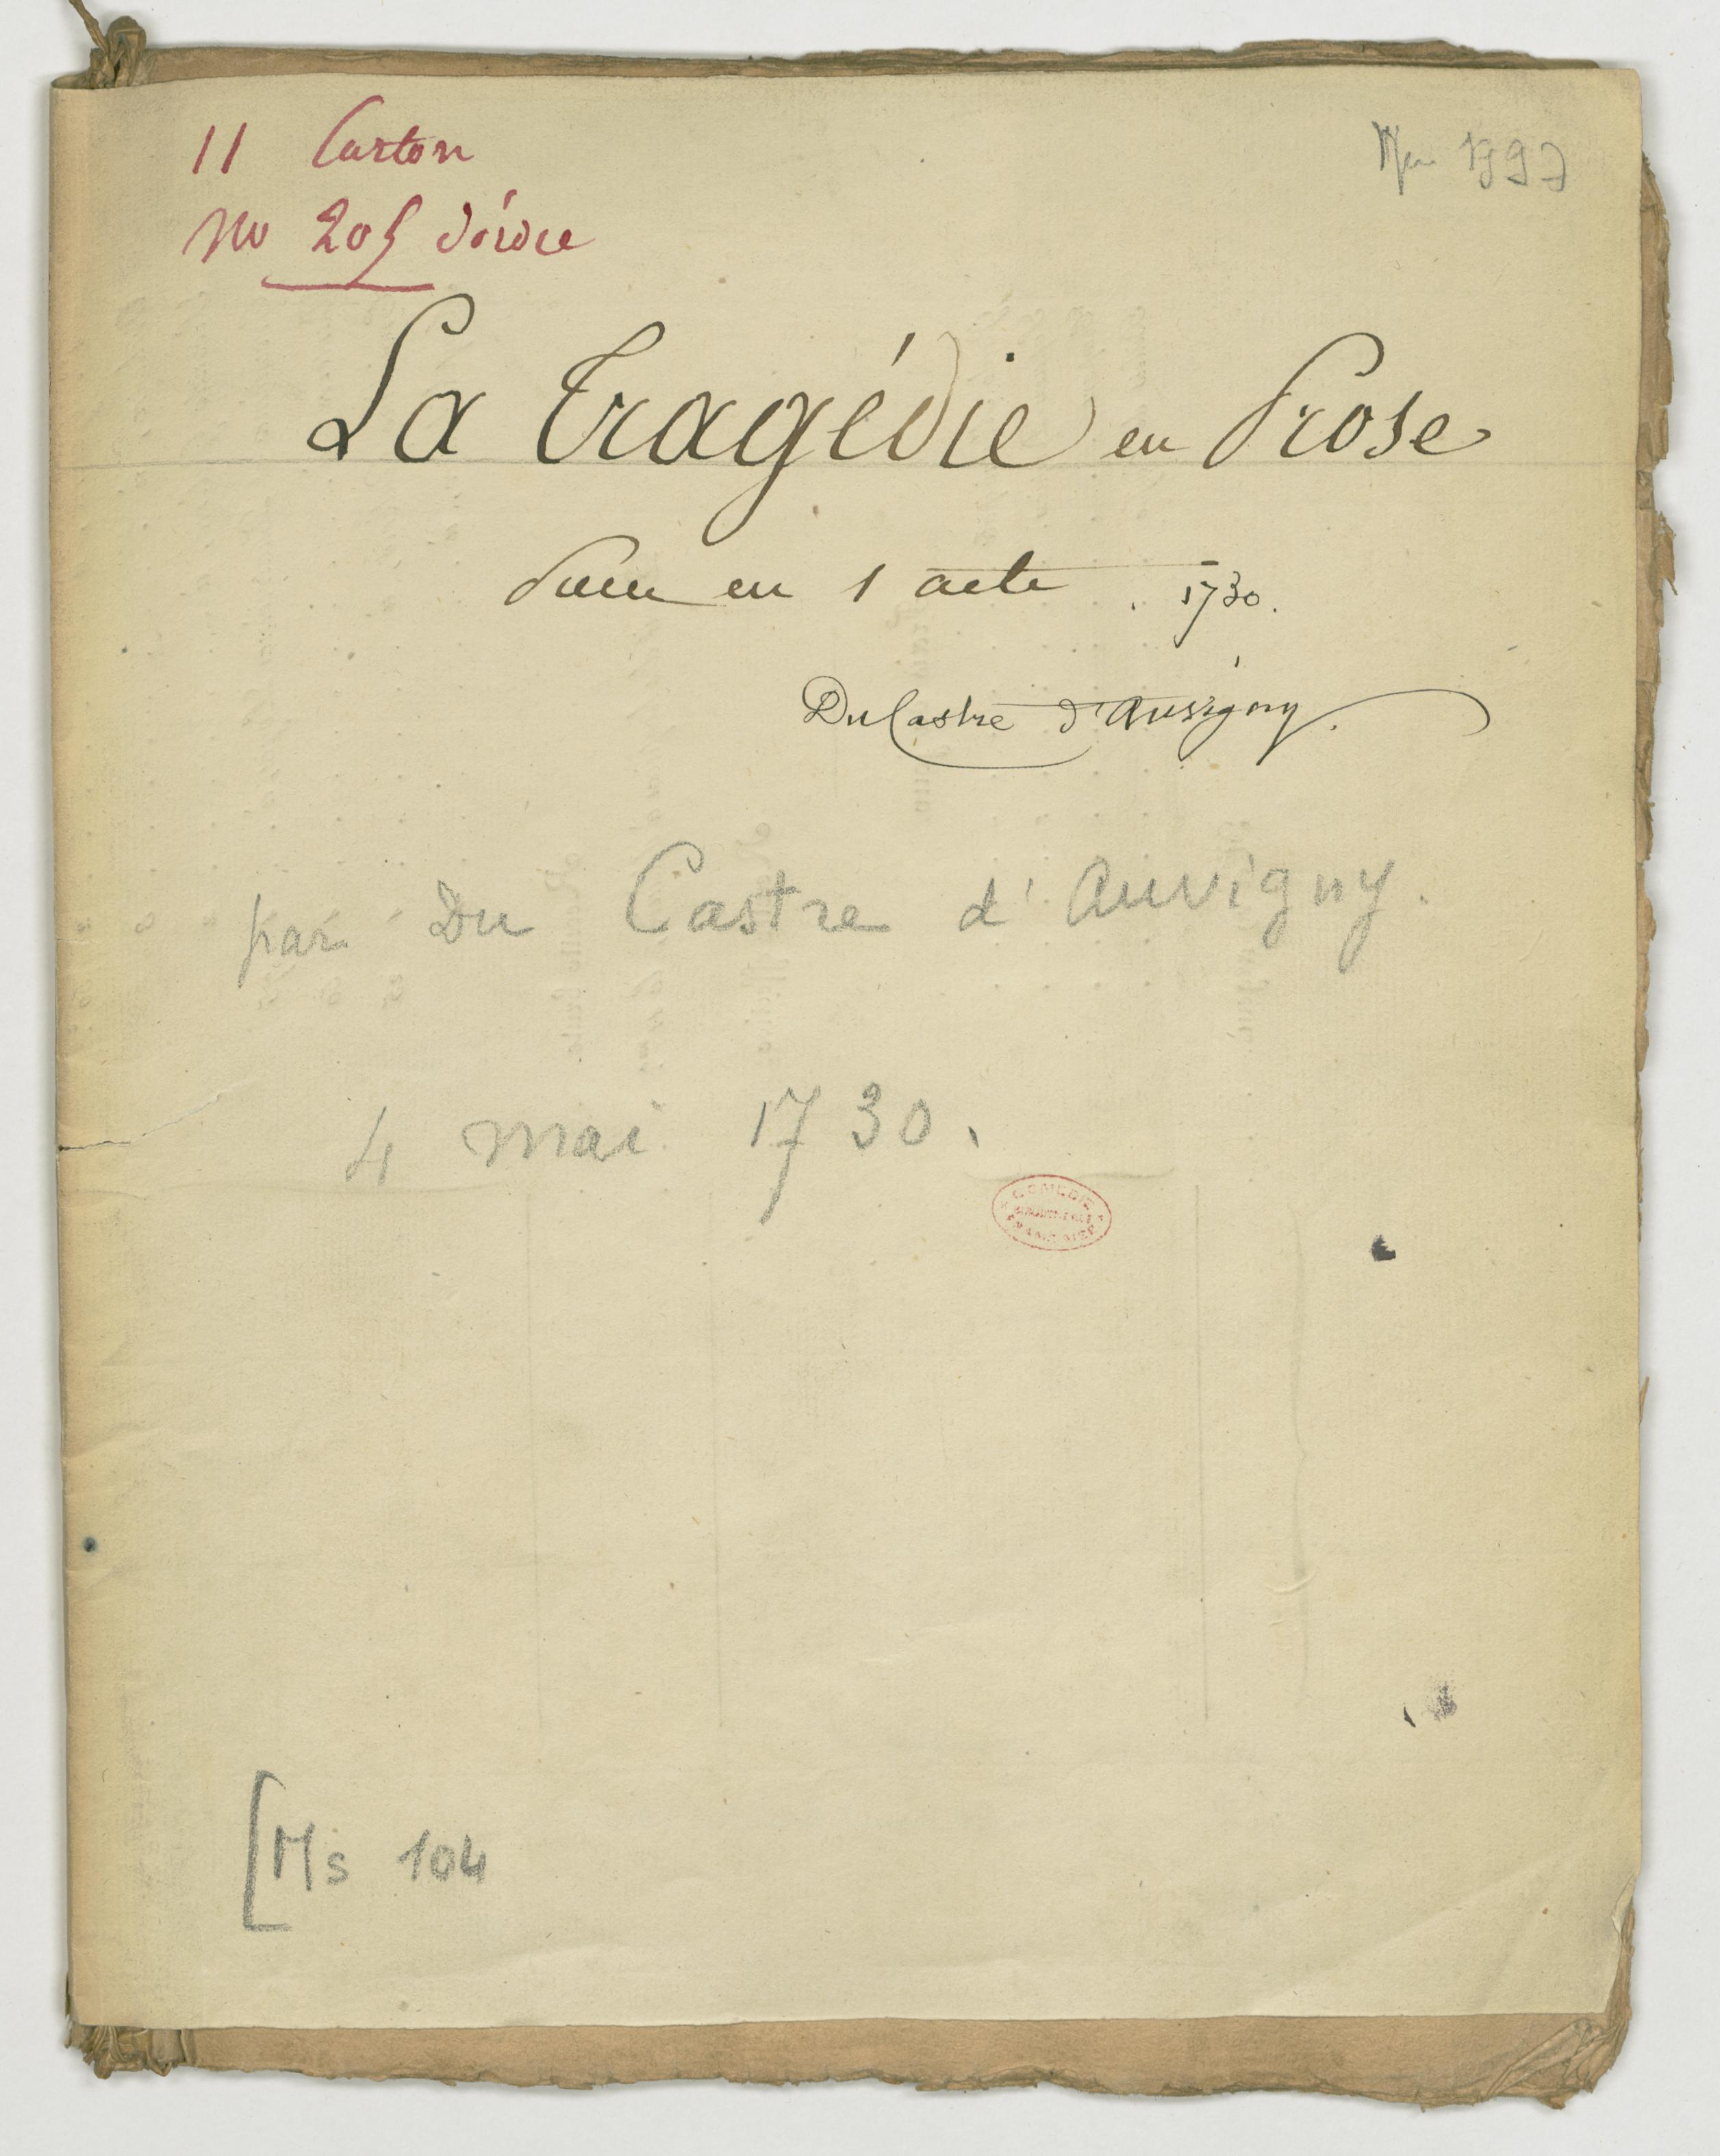 11 Carton
No 205 d'órdre
1997
La Tragédie en Prose
Piece en 1 acte. 1730.
Du Castre d'Auvigny.
par Du Castre d'Auvigny.
4 mai 1730.
COMÉDIE
FRANÇAISE
[Ms 104